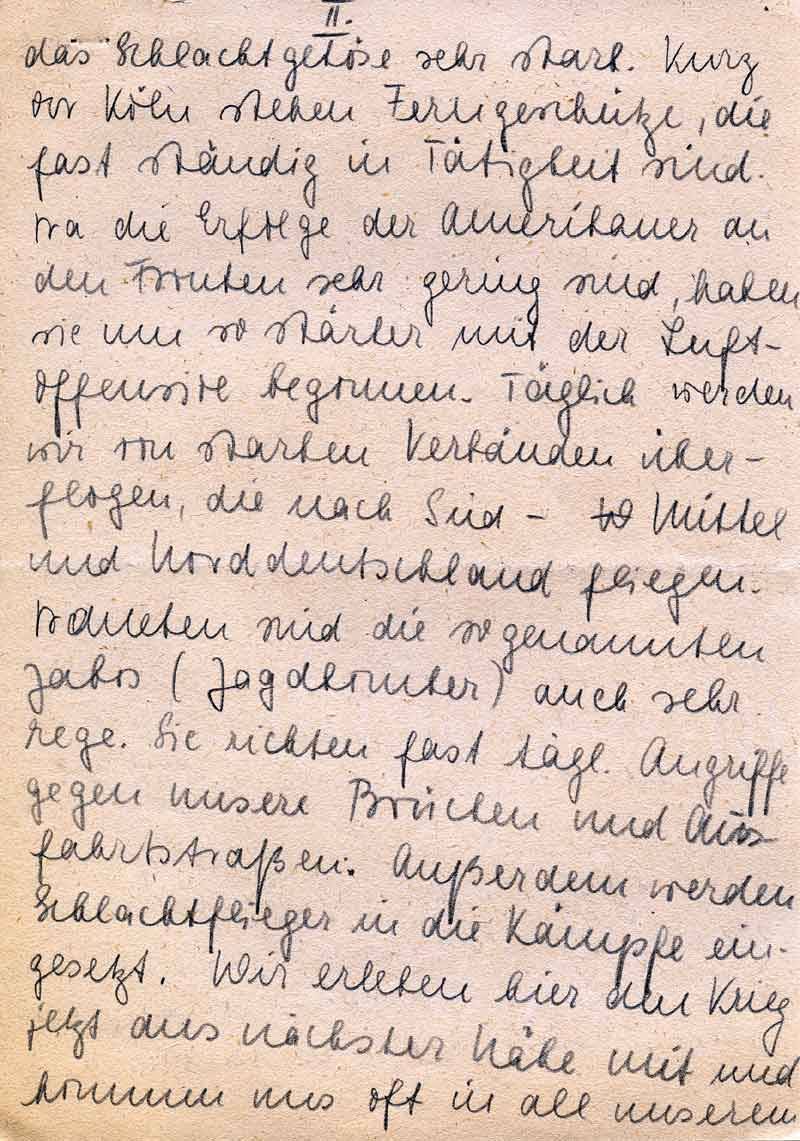 II.
das Schlachtgetöse sehr stark. Kurz
vor Köln stehen Ferngeschütze, die
fast ständig in Tätigkeit sind.
Da die Erfolge der Amerikaner an
den Fronten sehr gering sind, haben
sie um so stärker mit der Luft-
offensive begonnen. Täglich werden
wir von starken Verbänden über-
flogen, die nach Süd- Mittel
und Norddeutschland fliegen.
Daneben sind die sogenannten
Jabos (Jagdbomber) auch sehr
rege. Sie richten fast tägl. Angriffe
gegen unsere Brücken und Aus-
fahrtstraßen. Außerdem werden
Schlachtflieger in die Kämpfe ein-
gesetzt. Wir erleben hier den Krieg
jetzt aus nächster Nähe mit und
kommen uns oft in all unserem